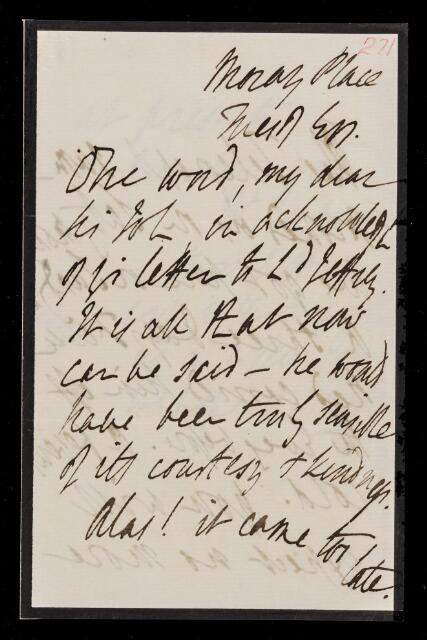 271
Moray Place
Tuesd Evg.
One word, my dear
Sir EbL, in acknowledgt
of yr letter to Ld Jeffrey.
It is all that now
can be said – he would
have been truly sensible
of its courtesy & kindness.
Alas! it came too
late.